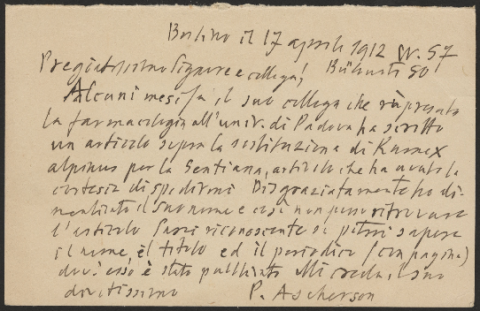 Berlino il 17 aprile 1912 W. 57
Pregiatissimo Signore e collega! Bülowstr 50
Alcuni mesi fa, il suo collega che rapresenta
la farmacologia all'univ. di Padova ha scritto
un articolo sopra la sostituzione di Rumex
alpinus per la Gentiana, articolo che ha avuto la
cortesia di spedirmi Disgraziatamente ho di-
menticato il suo nome e così non posso ritrovare
l'articolo Sarei riconoscente se potrei sapere
il nome, el titolo ed il periodico (con pagina)
dov' esso è stato pubblicato Mi creda, il suo
devotissimo P. Ascherson